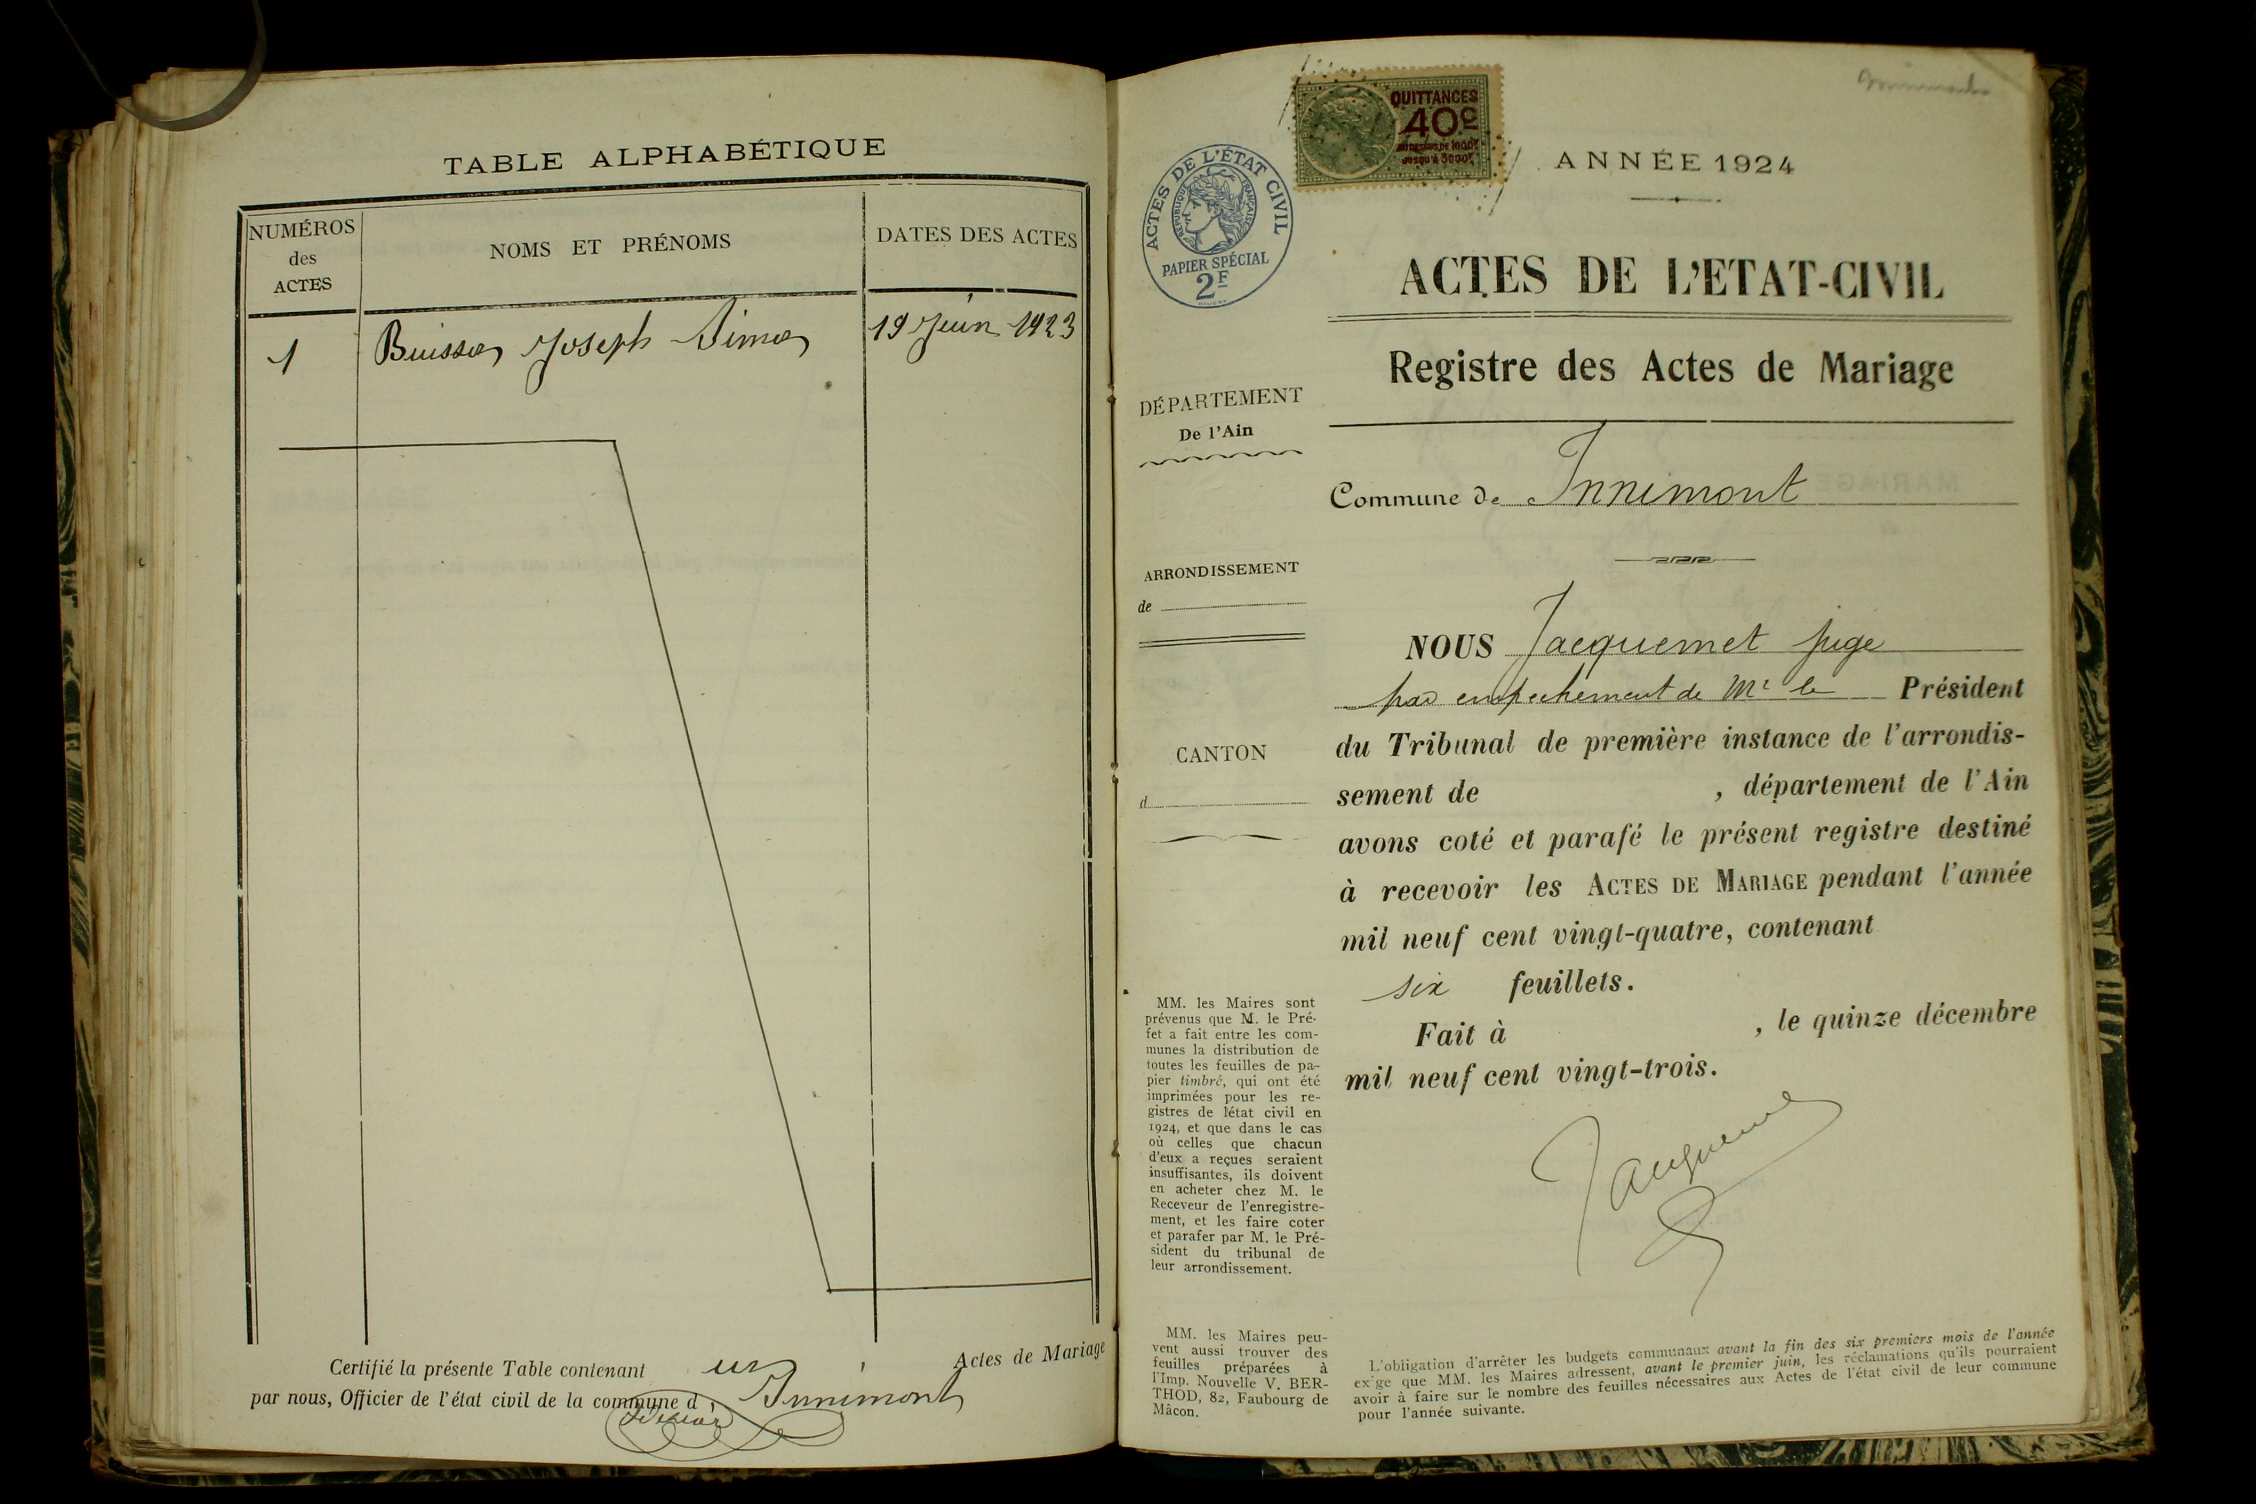 TABLE ALPHABÉTIQUE
NUMÉROS
des
ACTES
NOMS ET PRÉNOMS
DATES DES ACTES
1
Buisson Joseph Simon
19 Juin 1923
Certifié la présente Table contenant un Actes de Mariage
par nous, Officier de l'état civil de la commune d'Innimont
QUITTANCES
40c
ACTES DE L'ÉTAT CIVIL
RÉPUBLIQUE FRANÇAISE
PAPIER SPÉCIAL
2F
ANNÉE 1924
ACTES DE L'ETAT-CIVIL
Registre des Actes de Mariage
DÉPARTEMENT
De l'Ain
Commune de Innimont
ARRONDISSEMENT
de
CANTON
d
NOUS Jacquemet juge
par empechement de Mr le Président
du Tribunal de première instance de l'arrondis-
sement de , département de l'Ain
avons coté et parafé le présent registre destiné
à recevoir les ACTES DE MARIAGE pendant l'année
mil neuf cent vingt-quatre, contenant
six feuillets.
Fait à , le quinze décembre
mil neuf cent vingt-trois.
MM. les Maires sont
prévenus que M. le Pré-
fet a fait entre les com-
munes la distribution de
toutes les feuilles de pa-
pier timbré, qui ont été
imprimées pour les re-
gistres de l'état civil en
1924, et que dans le cas
où celles que chacun
d'eux a reçues seraient
insuffisantes, ils doivent
en acheter chez M. le
Receveur de l'enregistre-
ment, et les faire coter
et parafer par M. le Pré-
sident du tribunal de
leur arrondissement.
MM. les Maires peu-
vent aussi trouver des
feuilles préparées à
l'Imp. Nouvelle V. BER-
THOD, 82, Faubourg de
Mâcon.
L'obligation d'arrêter les budgets communaux avant la fin des six premiers mois de l'année
exige que MM. les Maires adressent, avant le premier juin, les réclamations qu'ils pourraient
avoir à faire sur le nombre des feuilles nécessaires aux Actes de l'état civil de leur commune
pour l'année suivante.